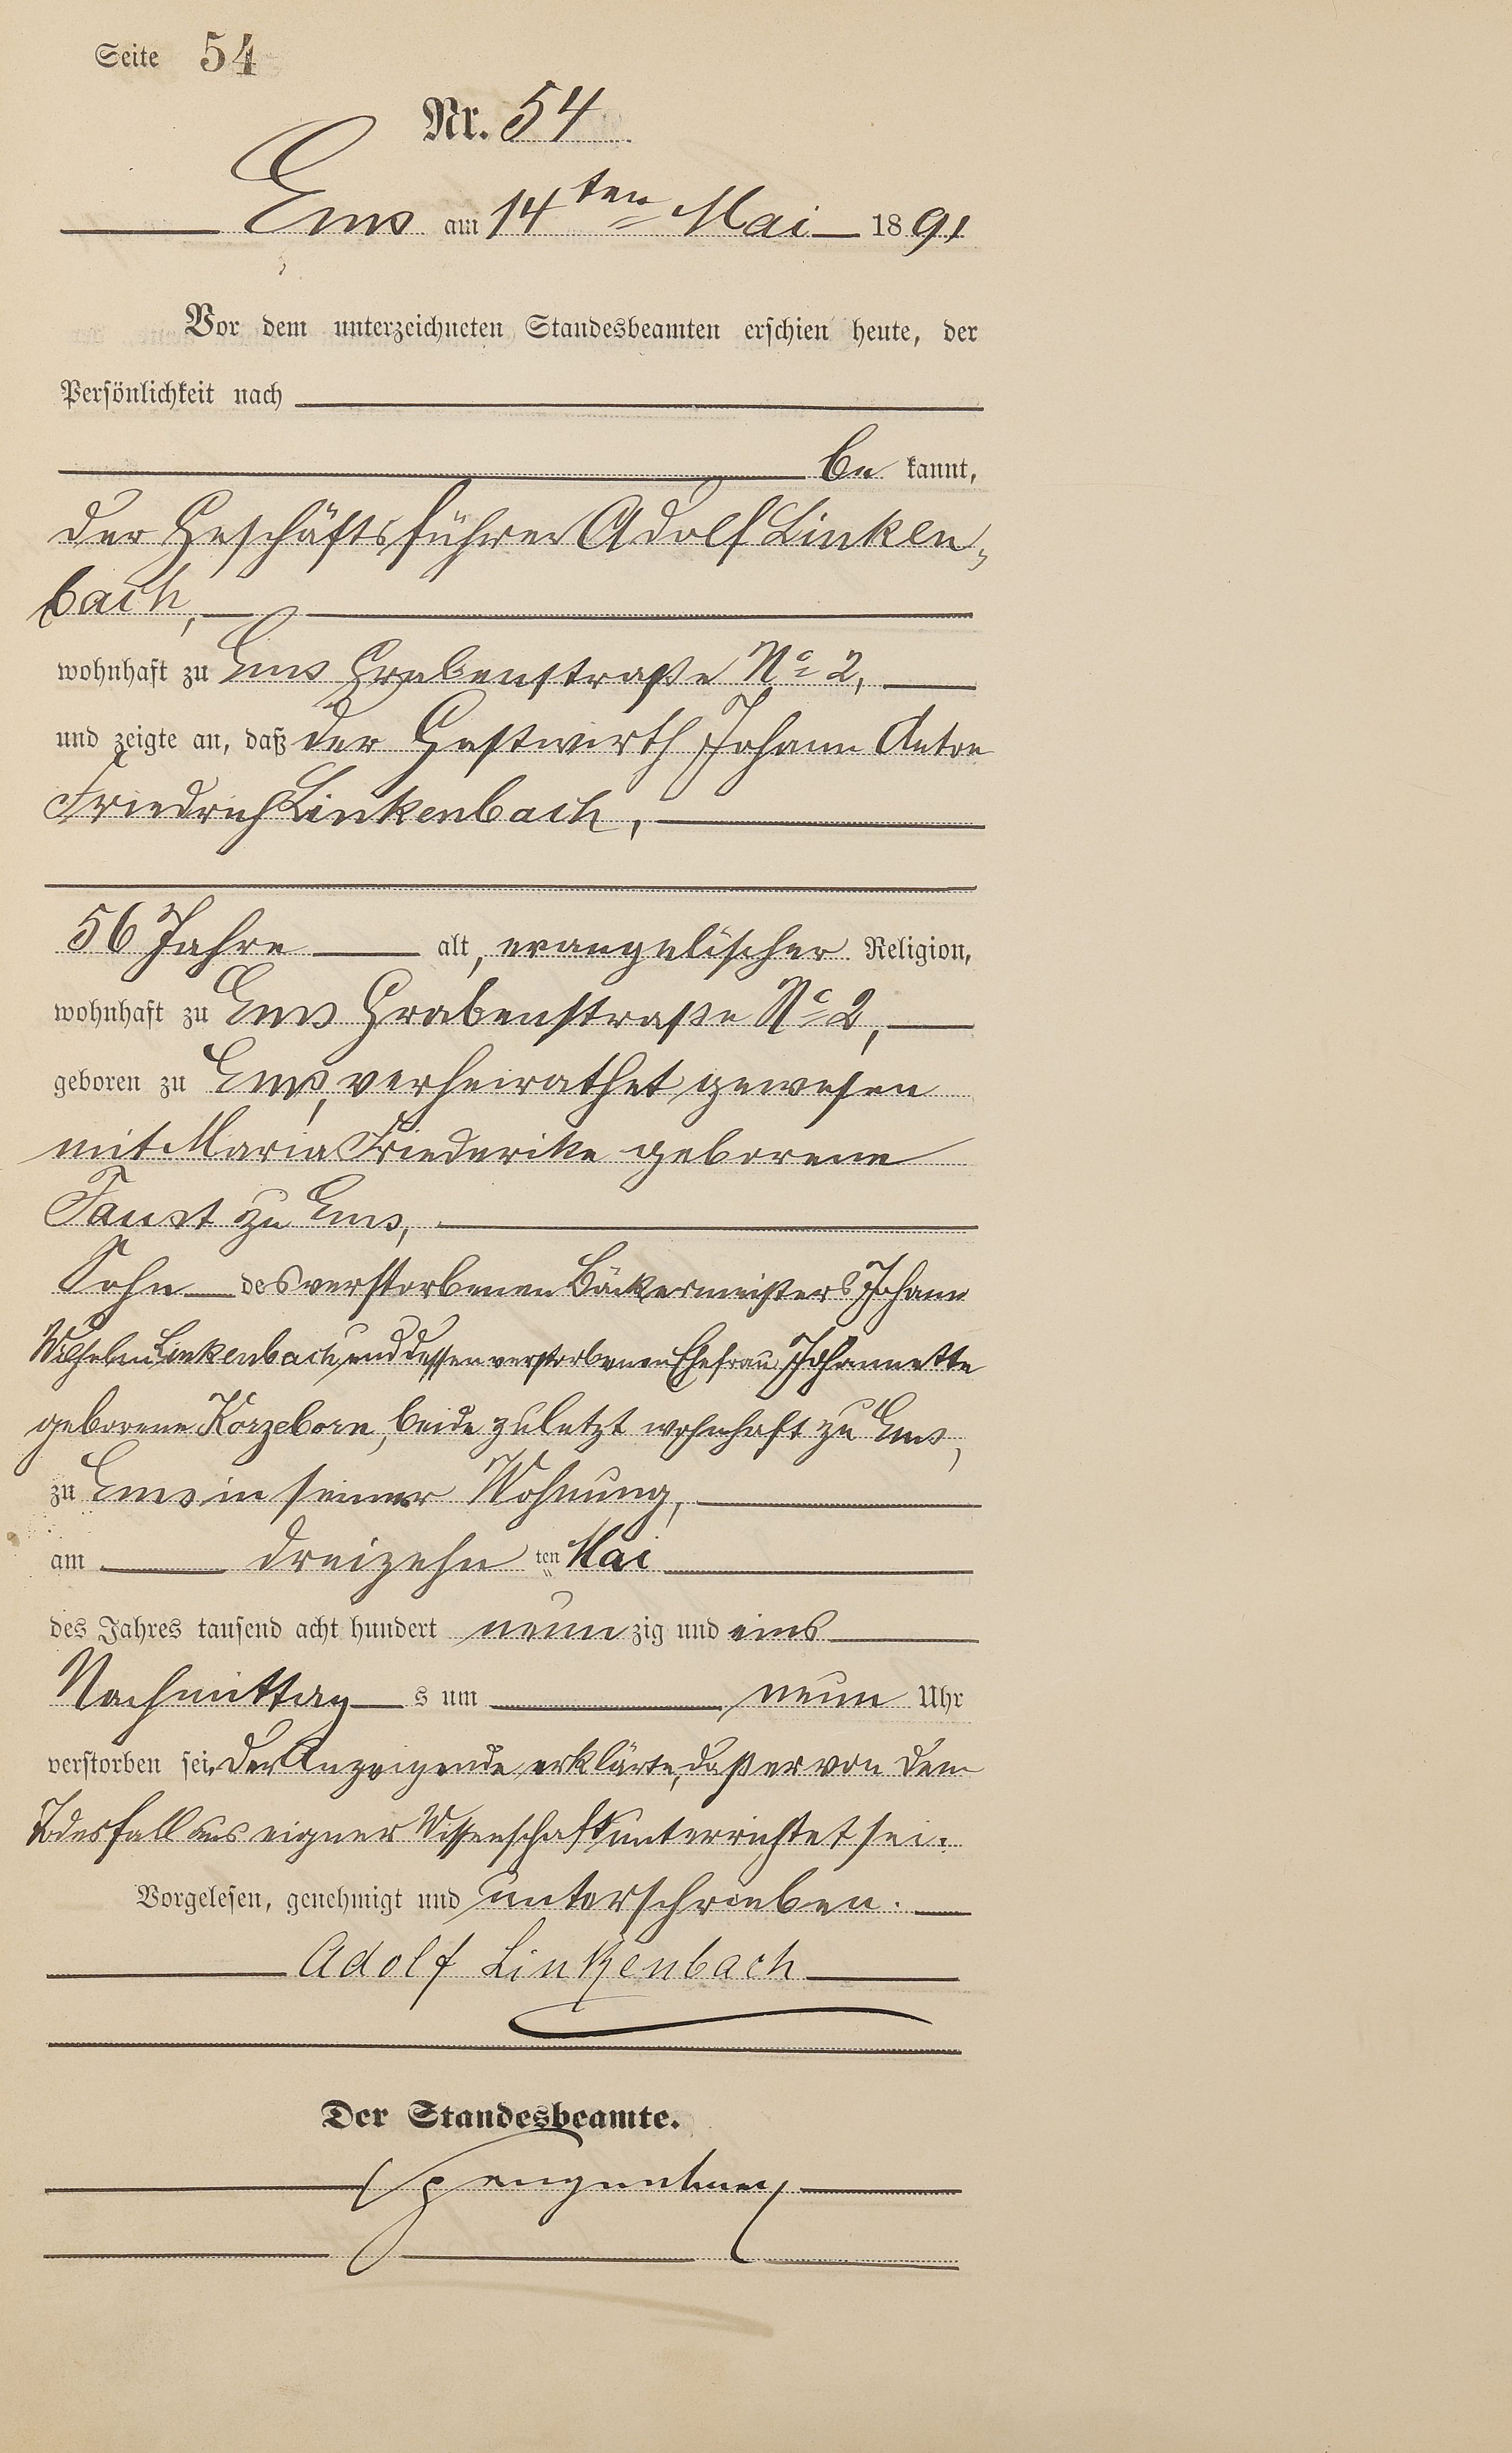 Seite 54
Nr. 54
Ems am 14ten Mai 1891
Vor dem unterzeichneten Standesbeamten erschien heute, der
Persönlichkeit nach
be kannt,
der Geschäftsführer Adolf Linken-
bach,
wohnhaft zu Ems Grabenstraße No 2,
und zeigte an, daß der Gastwirth Johann Anton
Friedrich Linkenbach,
56 Jahre alt, evangelischer Religion,
wohnhaft zu Ems Grabenstraße No 2,
geboren zu Ems, verheirathet gewesen
mit Maria Friederike geborene
Faust zu Ems,
Sohn des verstorbenen Bäckermeisters Johann
Wilhelm Linkenbach und dessen verstorbenen Ehefrau Johannette
geborene Korzeborn, beide zuletzt wohnhaft zu Ems,
zu Ems in seiner Wohnung,
am dreizehn ten Mai
des Jahres tausend acht hundert neun zig und eins
Nachmittag s um neun Uhr
verstorben sei. Der Anzeigende erklärte, daß er von dem
Todesfall aus eigner Wissenschaft unterrichtet sei.
Vorgelesen, genehmigt und unterschrieben.
Adolf Linkenbach
Der Standesbeamte.